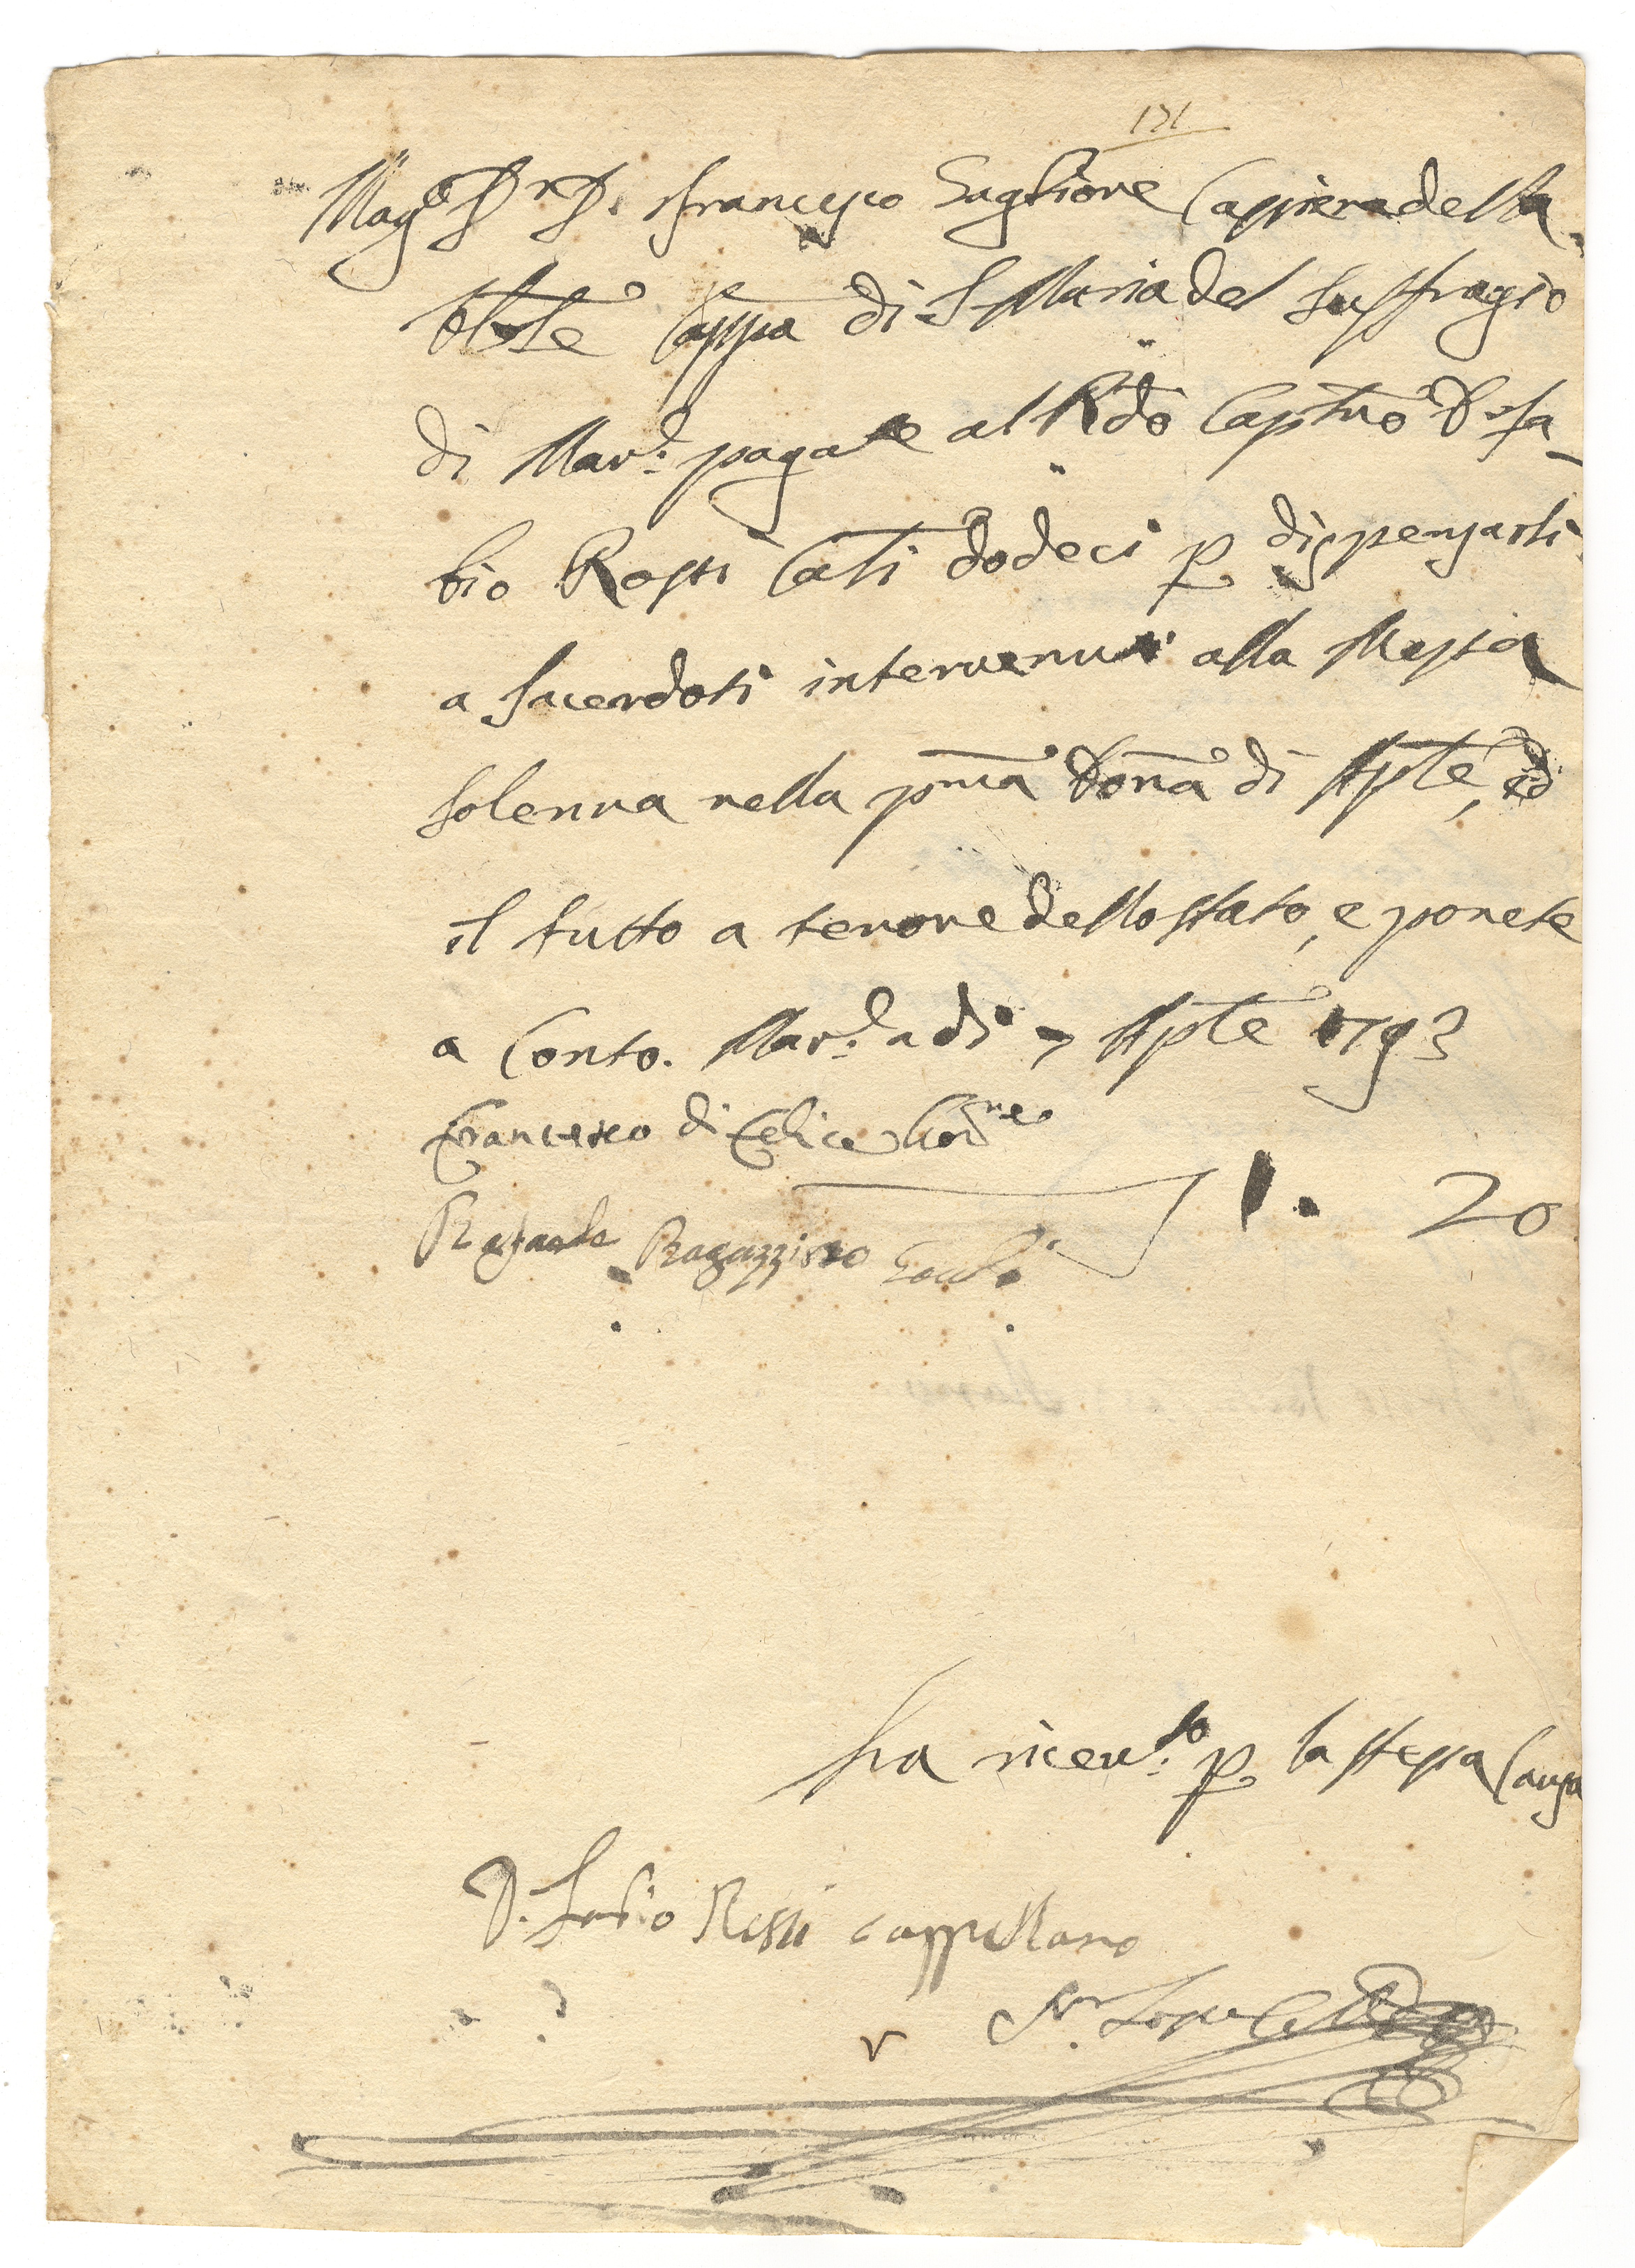 131
Mag.co D.r D. Francesco Saglione Cassiero della
Ven.le Capp.a di S. Maria del Suffragio
di Mar.a pagate al R.do Cap.no D. Fa-
bio Rossi Carlini dodeci p. dispensarli
a Sacerdoti intervenuti alla Messa
solenna nella p.ma Dom.a di Sp.te, ed
il tutto a tenore dello stato, e ponete
a Conto. Mar.a a di 7 Sp.te 1793
Francesco di Felice
Rafaele Ragazzino
1. 20
ha ricev.to p. la stessa Causa
D. Fabio Rossi cappellano